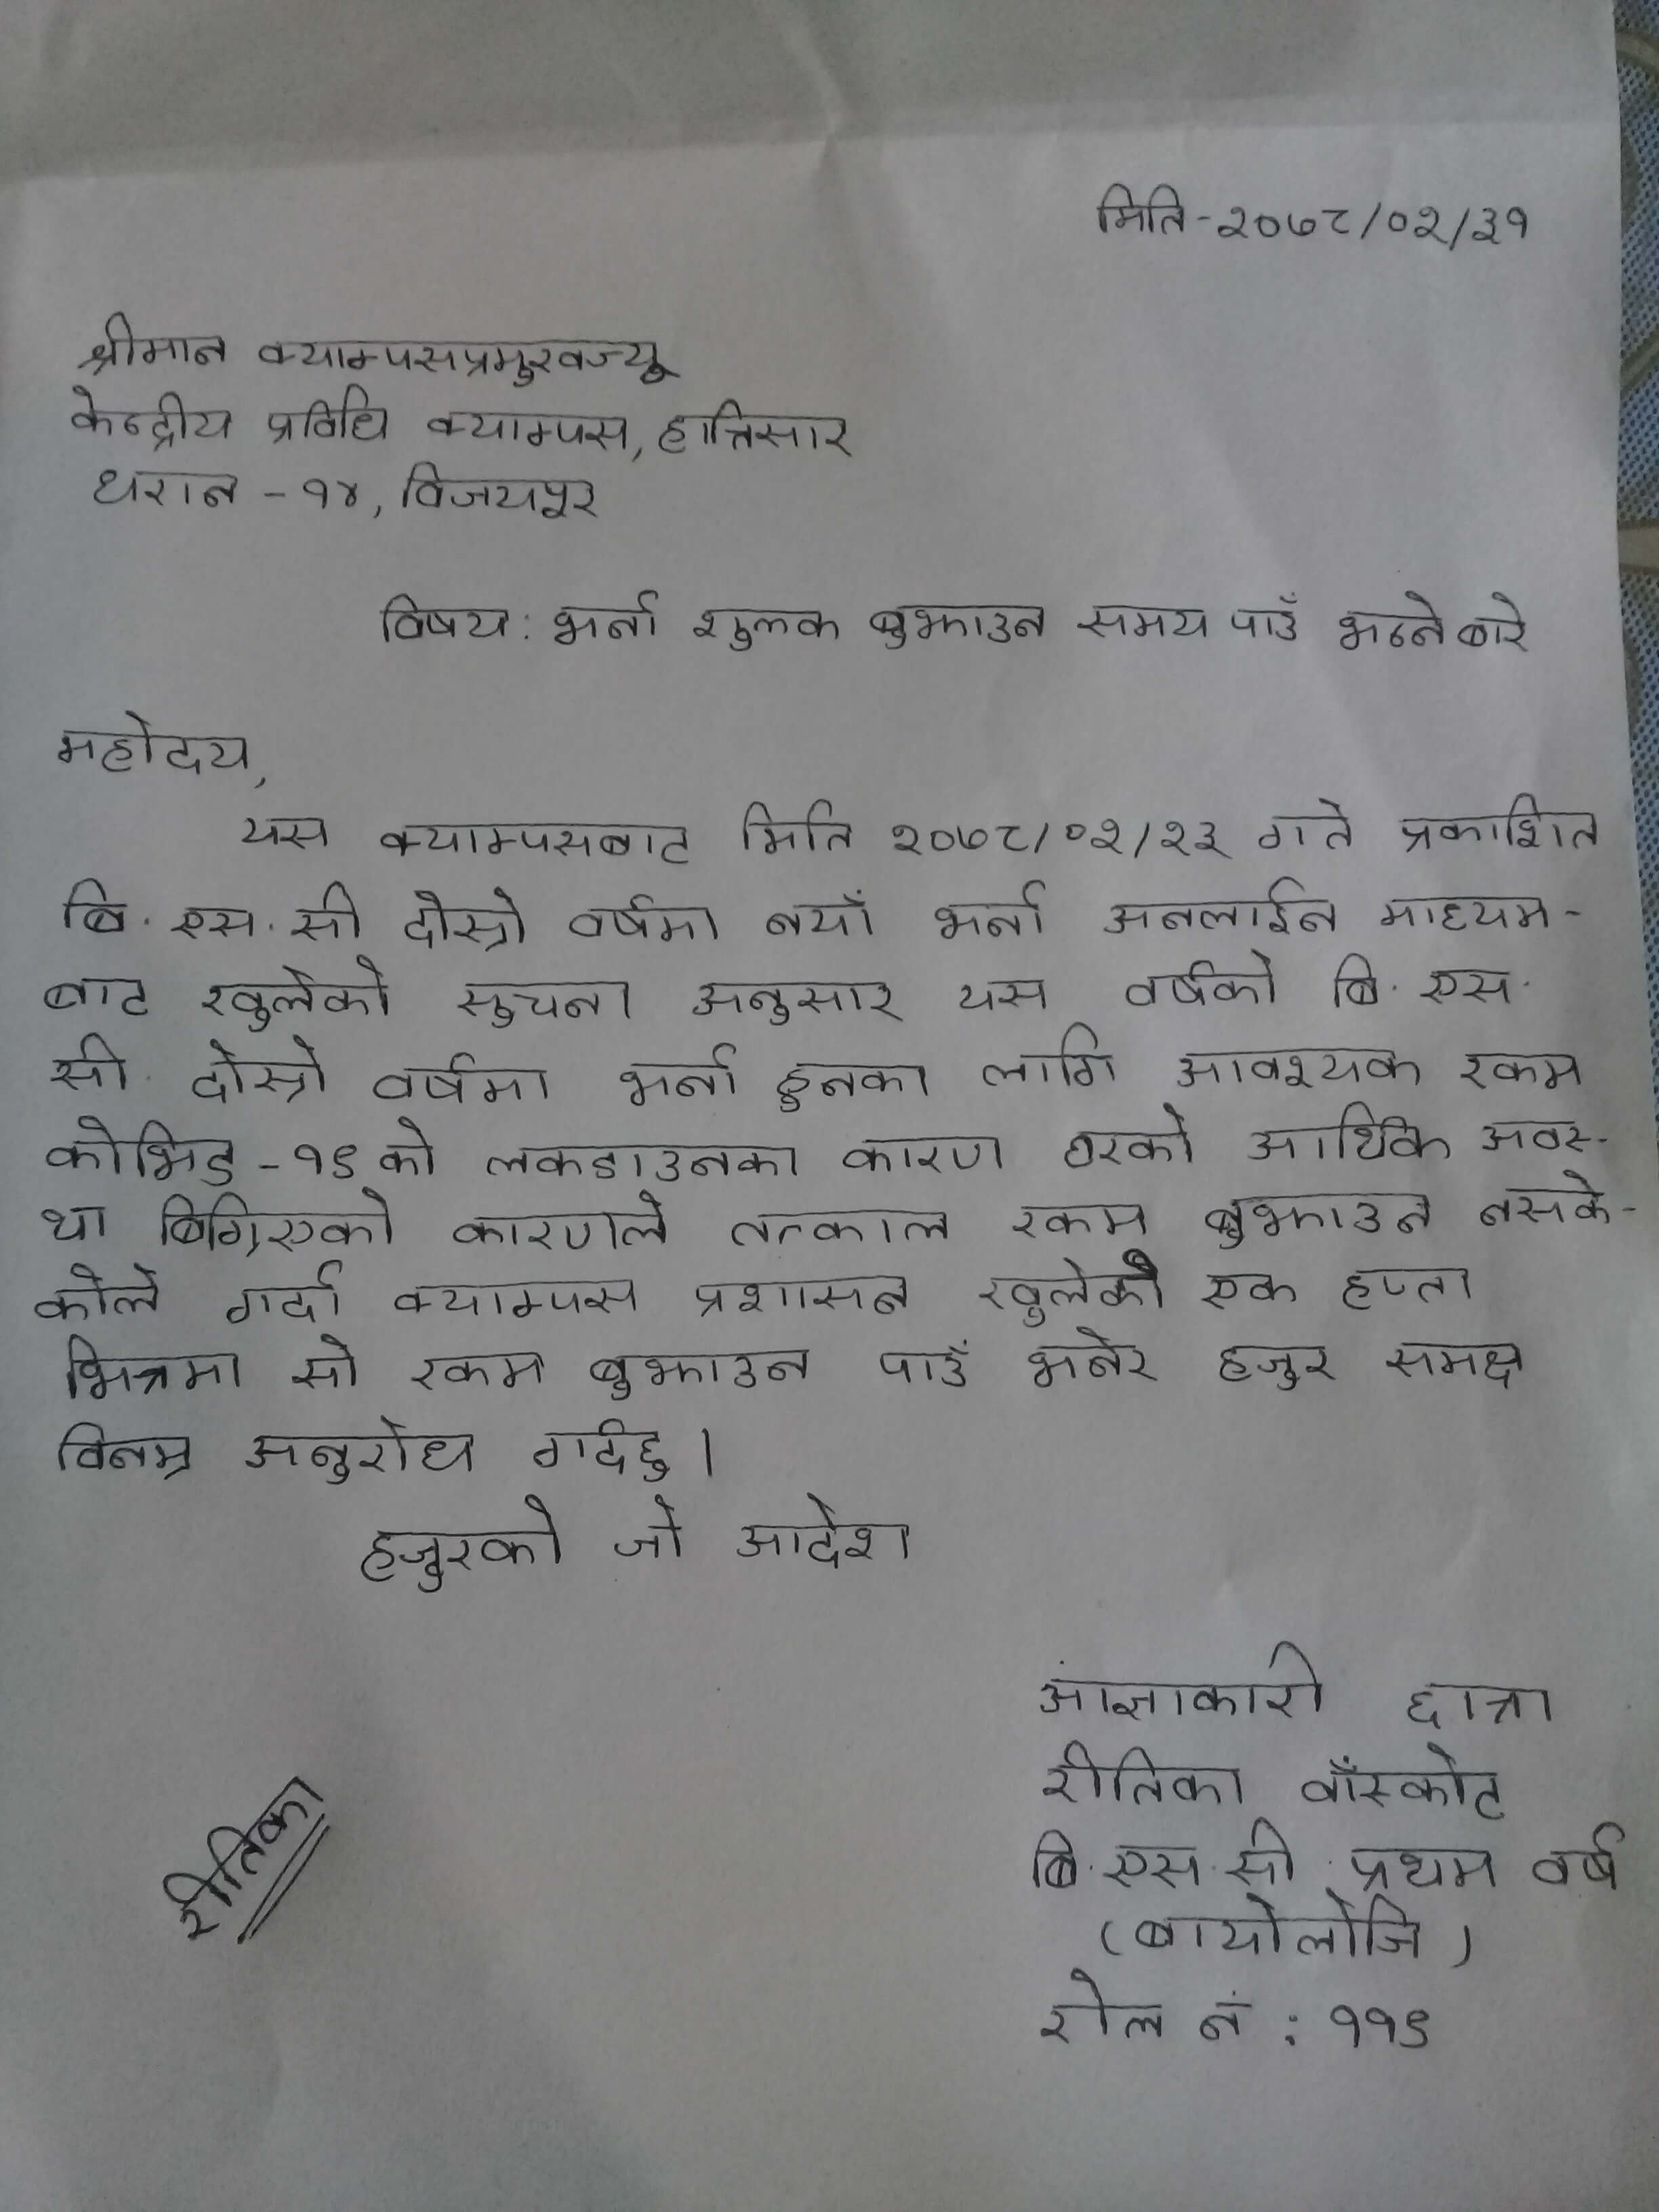 मिति-२०७८/०२/३१
श्रीमान क्याम्पसप्रमुखज्यू
केन्द्रीय प्रविधि क्याम्पस, हात्तिसार
धरान -१४, विजयपूर
विषय: भर्ना शुल्क बुझाउन समय पाउँ भन्ने बारे
महोदय,
यस क्याम्पसबाट मिति २०७८/०२/२३ गते प्रकाशित
बि.एस.सी दोस्रो वर्षमा नयाँ भर्ना अनलाईन माध्यम-
बाट खुलेको सुचना अनुसार यस वर्षको बि.एस.
सी. दोस्रो वर्षमा भर्ना हुनका लागि आवश्यक रकम
कोभिड -१९ को लकडाउनका कारण घरको आर्थिक अवस-
था बिग्रिएको कारणले तत्काल रकम बुझाउन नसके-
कोले गर्दा क्याम्पस प्रशासन खुलेको एक हप्ता
भित्रमा सो रकम बुझाउन पाउँ भनेर हजुर समक्ष
विनम्र अनुरोध गर्दछु।
हजुरको जो आदेश
आंज्ञाकारी छात्रा
रीतिका बाँस्कोट
बि.एस.सी. प्रथम वर्ष
(बायोलोजि)
रोल नं : ११९
रीतिका